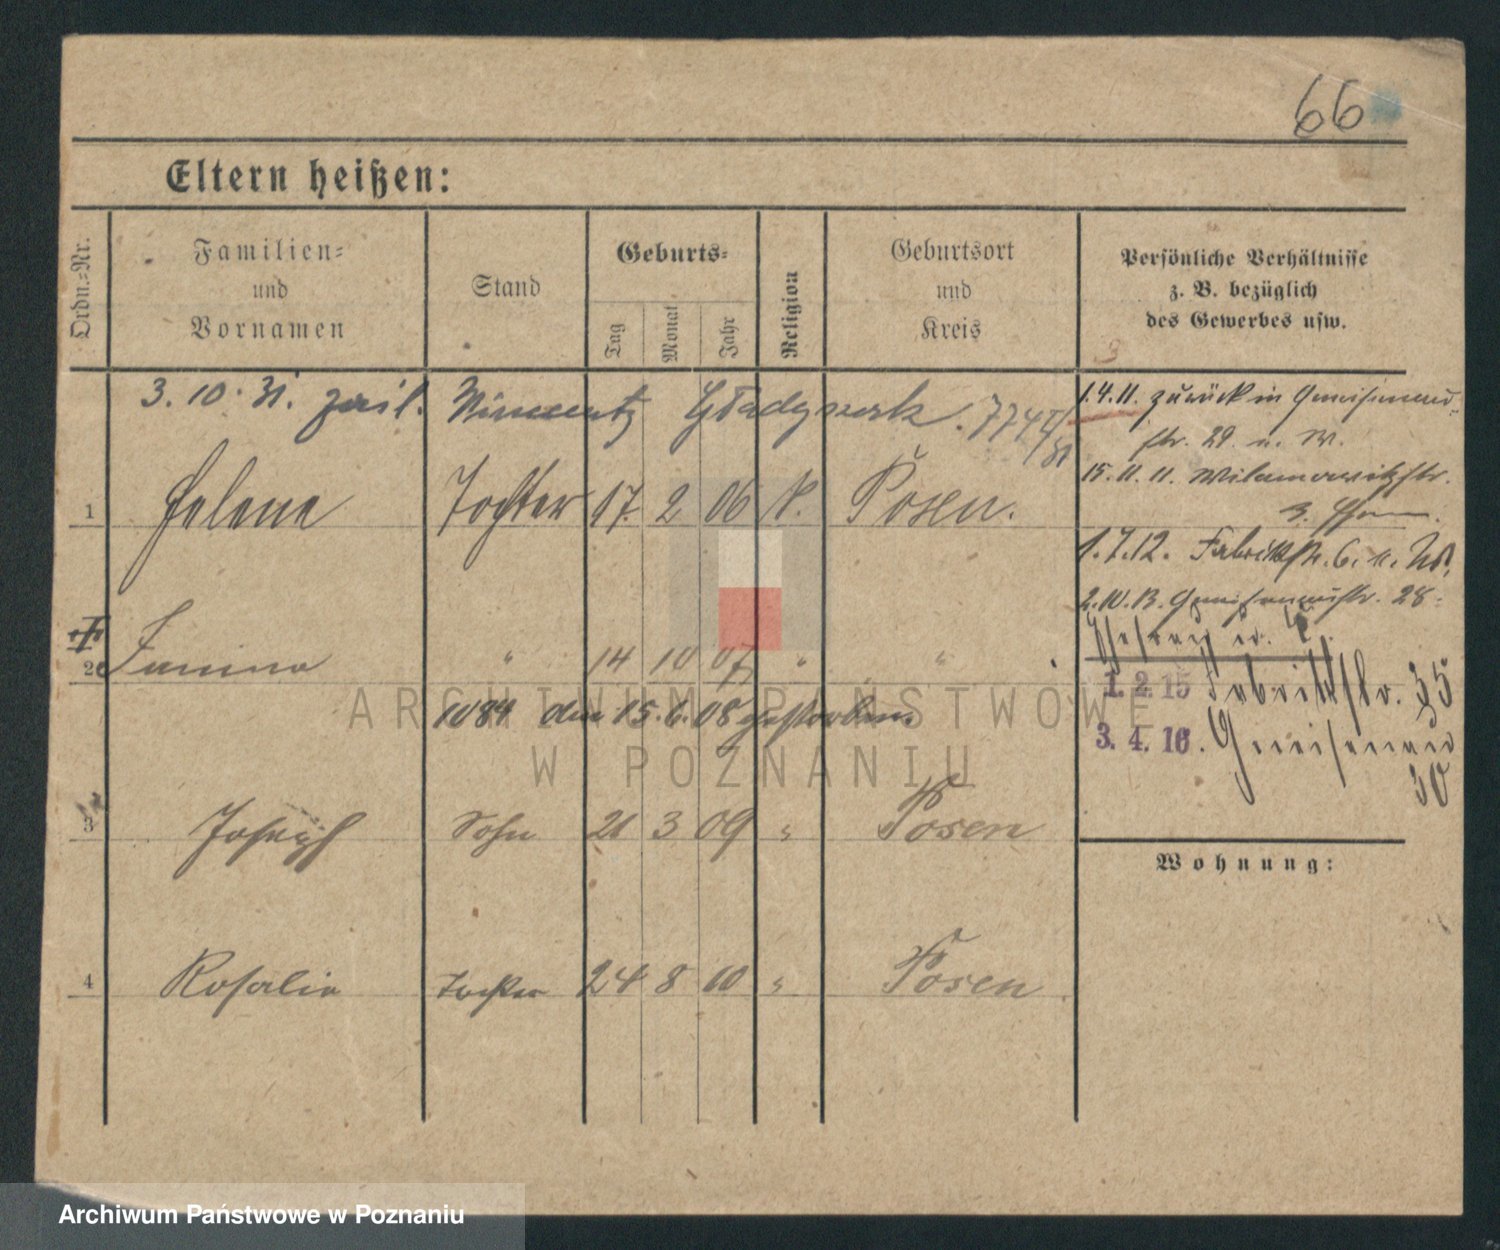 66
Eltern heißen:
Ordn.-Nr.
Familien-
und
Vornamen
Stand
Geburts-
Tag
Monat
Jahr
Religion
Geburtsort
und
Kreis
Persönliche Verhältnisse
z. B. bezüglich
des Gewerbes usw.
3. 10. 31.
1.4.11. zurück in Gneisenau-
str. 29. u. W.
15. 11. 11. Wilamowitzstr.
1 Helene Tochter 17. 2 06 k. Posen.
1.7.12. Fabrikstr. 6. u.
2.10.13. Gneisenaustr. 28.
Ehefrau u.
2 Janina " 14 10 07 " "
1. 2 15 Fabrikstr. 35
1084 den 15. 6. 08 gestorben.
3. 4. 16. Gneisenau
30
3 Joseph Sohn 21 3 09 " Posen
Wohnung:
4 Rosalie Tochter 24 8 10 " Posen
ARCHIWUM PAŃSTWOWE
W POZNANIU
Archiwum Państwowe w Poznaniu